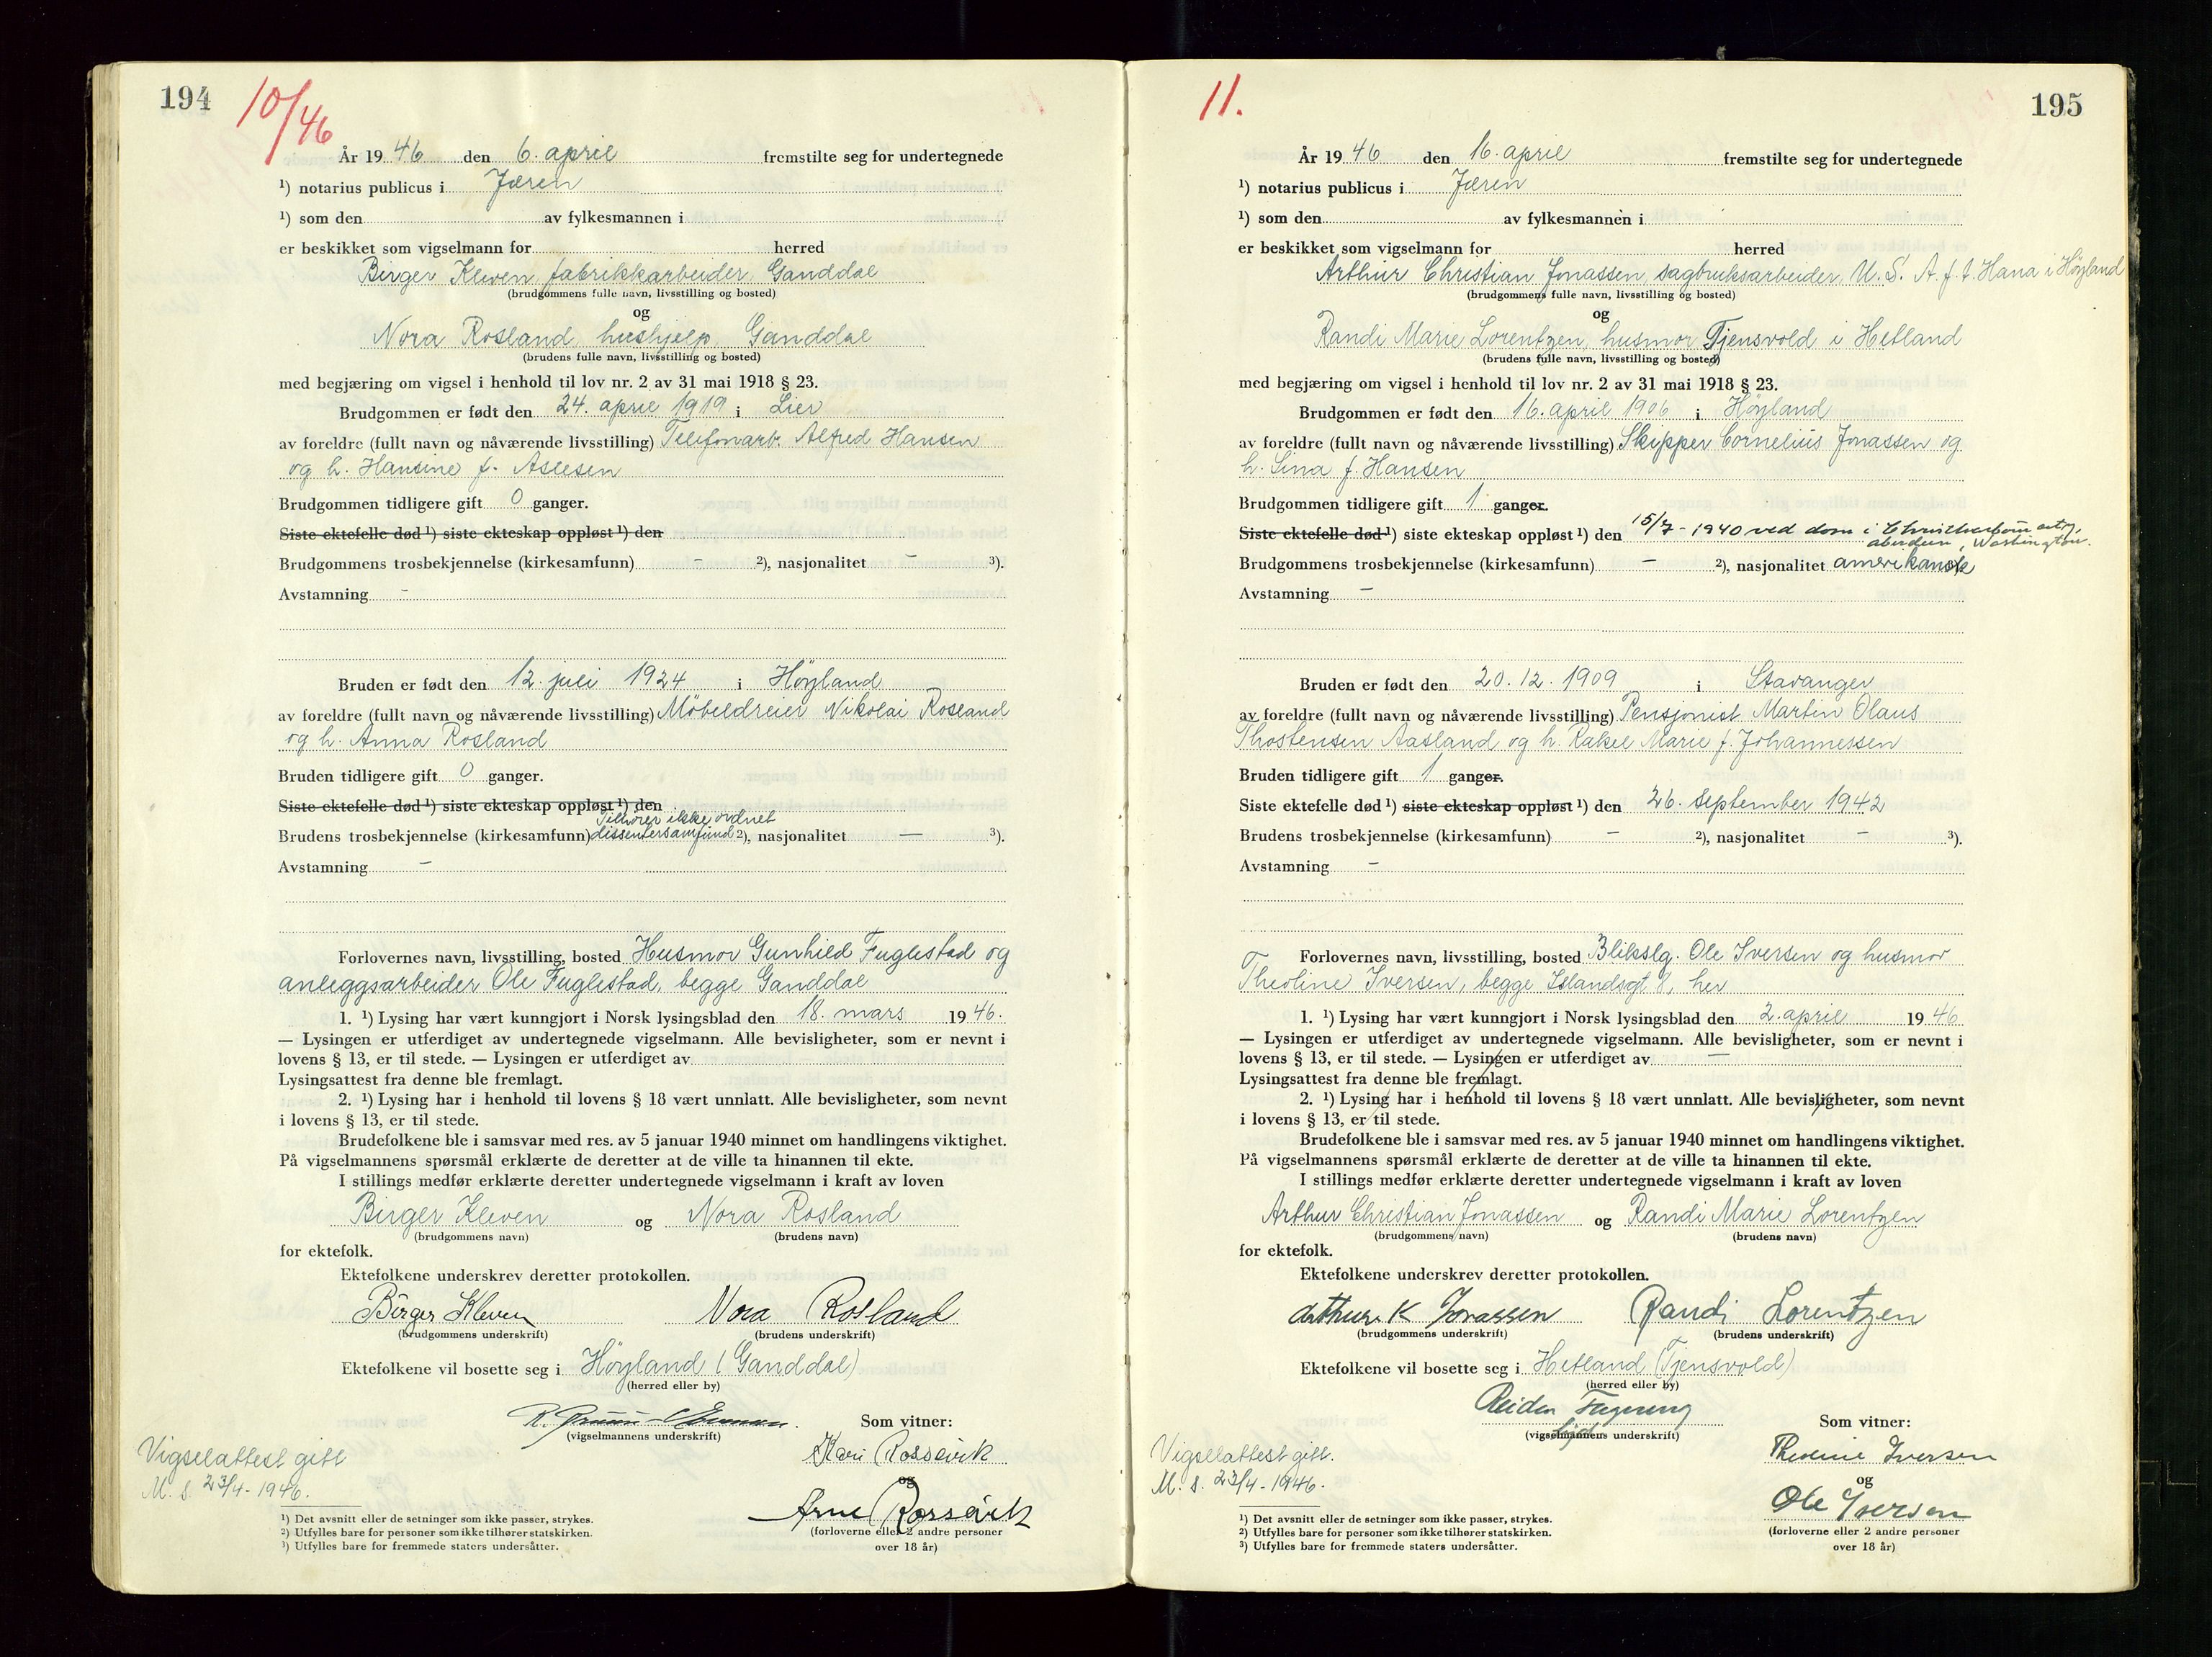 194
10/46
År 19 46 den 6. april fremstilte seg for undertegnede
¹) notarius publicus i Jæren
¹) som den av fylkesmannen i
er beskikket som vigselmann for herred
Birger Kleven, fabrikkarbeider, Ganddal
(brudgommens fulle navn, livsstilling og bosted)
og
Nora Rosland, hushjelp, Ganddal
(brudens fulle navn, livsstilling og bosted)
med begjæring om vigsel i henhold til lov nr. 2 av 31 mai 1918 § 23.
Brudgommen er født den 24. april 1919 i Lier
av foreldre (fullt navn og nåværende livsstilling) Telefonarb. Alfred Hansen
og h. Hansine f. Aslesen
Brudgommen tidligere gift 0 ganger.
Siste ektefelle død ¹) siste ekteskap oppløst ¹) den
Brudgommens trosbekjennelse (kirkesamfunn) - ²), nasjonalitet - ³).
Avstamning -
Bruden er født den 12. juli 1924 i Høyland
av foreldre (fullt navn og nåværende livsstilling) Möbeldreier Nikolai Rosland
og h. Anna Rosland
Bruden tidligere gift 0 ganger.
Siste ektefelle død ¹) siste ekteskap oppløst ¹) den
Tilhører ikke ordnet
Brudens trosbekjennelse (kirkesamfunn) dissentersamfund ²), nasjonalitet — ³).
Avstamning -
Forlovernes navn, livsstilling, bosted Husmor Gunhild Fuglestad og
anleggsarbeider Ole Fuglestad, begge Ganddal
1. ¹) Lysing har vært kunngjort i Norsk lysingsblad den 18. mars 19 46.
— Lysingen er utferdiget av undertegnede vigselmann. Alle bevisligheter, som er nevnt i
lovens § 13, er til stede. — Lysingen er utferdiget av
Lysingsattest fra denne ble fremlagt.
2. ¹) Lysing har i henhold til lovens § 18 vært unnlatt. Alle bevisligheter, som nevnt
i lovens § 13, er til stede.
Brudefolkene ble i samsvar med res. av 5 januar 1940 minnet om handlingens viktighet.
På vigselmannens spørsmål erklærte de deretter at de ville ta hinannen til ekte.
I stillings medfør erklærte deretter undertegnede vigselmann i kraft av loven
Birger Kleven og Nora Rosland
(brudgommens navn) (brudens navn)
for ektefolk.
Ektefolkene underskrev deretter protokollen.
Birger Kleven Nora Rosland
(brudgommens underskrift) (brudens underskrift)
Ektefolkene vil bosette seg i Høyland (Ganddal)
(herred eller by)
Som vitner:
(vigselmannens underskrift)
Kari Rossavik
og
Arne Rossavik
(forloverne eller 2 andre personer
over 18 år)
Vigselattest gitt
M. S. 23/4-1946.
¹) Det avsnitt eller de setninger som ikke passer, strykes.
²) Utfylles bare for personer som ikke tilhører statskirken.
³) Utfylles bare for fremmede staters undersåtter.
11.
195
År 19 46 den 16. april fremstilte seg for undertegnede
¹) notarius publicus i Jæren
¹) som den av fylkesmannen i
er beskikket som vigselmann for herred
Arthur Christian Jonassen, sagbruksarbeider, U. S. A. f. t. Hana i Høyland
(brudgommens fulle navn, livsstilling og bosted)
og
Randi Marie Lorentzen, husmor Tjensvold i Hetland
(brudens fulle navn, livsstilling og bosted)
med begjæring om vigsel i henhold til lov nr. 2 av 31 mai 1918 § 23.
Brudgommen er født den 16. april 1906 i Høyland
av foreldre (fullt navn og nåværende livsstilling) Skipper Cornelius Jonassen og
h. Sina f. Hansen
Brudgommen tidligere gift 1 ganger.
Siste ektefelle død ¹) siste ekteskap oppløst ¹) den 15/7 - 1940 ved dom i
aberdeen, Washington.
Brudgommens trosbekjennelse (kirkesamfunn) - ²), nasjonalitet amerikansk
Avstamning -
Bruden er født den 20. 12. 1909 i Stavanger
av foreldre (fullt navn og nåværende livsstilling) Pensjonist Martin Olaus
Thostensen Aasland og h. Rakel Marie f. Johannessen
Bruden tidligere gift 1 ganger.
Siste ektefelle død ¹) siste ekteskap oppløst ¹) den 26. september 1942
Brudens trosbekjennelse (kirkesamfunn) - ²), nasjonalitet - ³).
Avstamning -
Forlovernes navn, livsstilling, bosted Blikslg. Ole Iversen og husmor
Theoline Iversen, begge Islandsgt 8, her
1. ¹) Lysing har vært kunngjort i Norsk lysingsblad den 2. april 19 46
— Lysingen er utferdiget av undertegnede vigselmann. Alle bevisligheter, som er nevnt i
lovens § 13, er til stede. — Lysingen er utferdiget av —
Lysingsattest fra denne ble fremlagt.
2. ¹) Lysing har i henhold til lovens § 18 vært unnlatt. Alle bevisligheter, som nevnt
i lovens § 13, er til stede.
Brudefolkene ble i samsvar med res. av 5 januar 1940 minnet om handlingens viktighet.
På vigselmannens spørsmål erklærte de deretter at de ville ta hinannen til ekte.
I stillings medfør erklærte deretter undertegnede vigselmann i kraft av loven
Arthur Christian Jonassen og Randi Marie Lorentzen
(brudgommens navn) (brudens navn)
for ektefolk.
Ektefolkene underskrev deretter protokollen.
Arthur K Jonassen Randi Lorentzen
(brudgommens underskrift) (brudens underskrift)
Ektefolkene vil bosette seg i Hetland (Tjensvold)
(herred eller by)
Som vitner:
(vigselmannens underskrift)
Theoline Iversen
og
Ole Iversen
(forloverne eller 2 andre personer
over 18 år)
Vigselattest gitt.
M. S. 23/4-1946.
¹) Det avsnitt eller de setninger som ikke passer, strykes.
²) Utfylles bare for personer som ikke tilhører statskirken.
³) Utfylles bare for fremmede staters undersåtter.